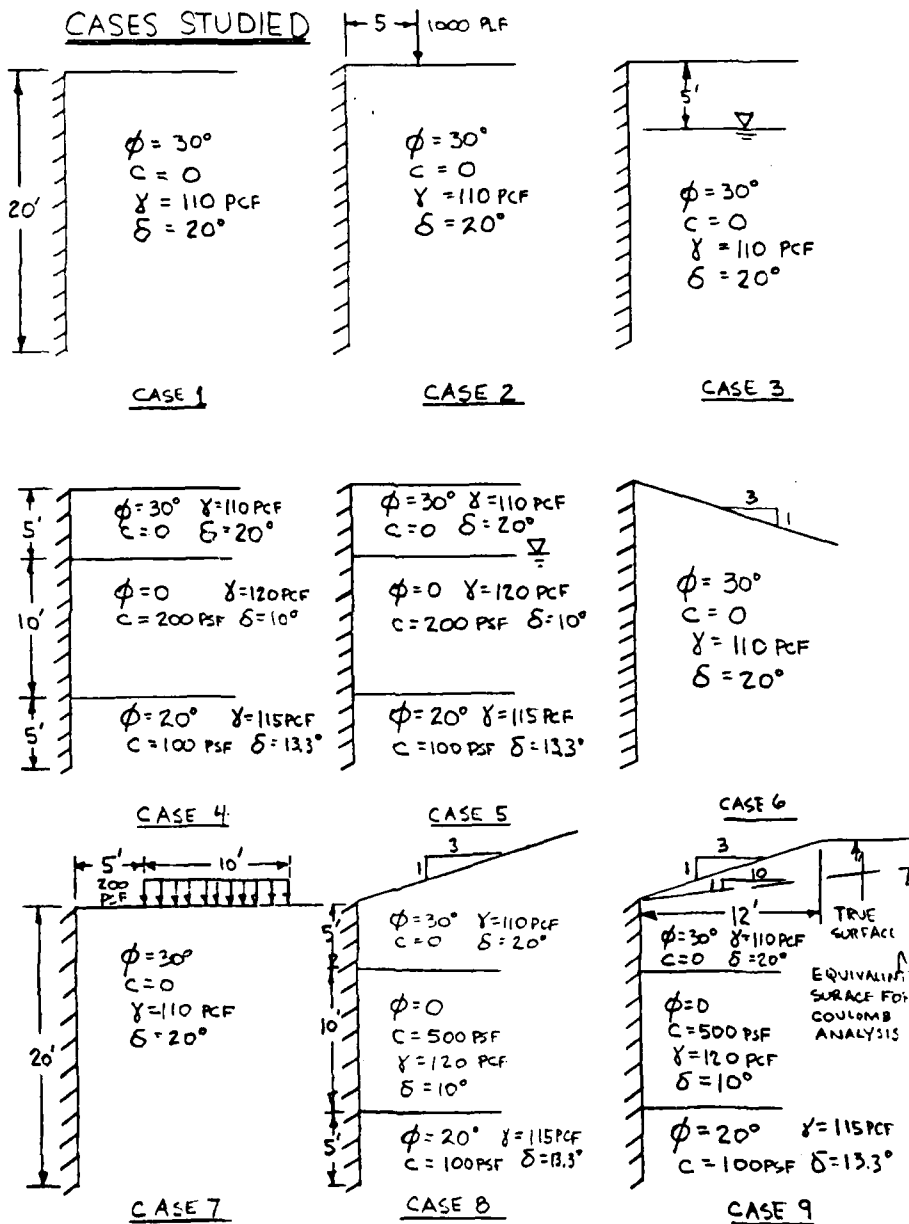 CASES STUDIED
5
1000 PLF
20'
ϕ = 30°
C = 0
γ = 110 PCF
δ = 20°
CASE 1
ϕ = 30°
C = 0
γ = 110 PCF
δ = 20°
CASE 2
5'
ϕ = 30°
C = 0
γ = 110 PCF
δ = 20°
CASE 3
5'
10'
5'
ϕ = 30° γ = 110 PCF
C = 0 δ = 20°
ϕ = 0 γ = 120 PCF
C = 200 PSF δ = 10°
ϕ = 20° γ = 115 PCF
C = 100 PSF δ = 13.3°
CASE 4
ϕ = 30° γ = 110 PCF
C = 0 δ = 20°
ϕ = 0 γ = 120 PCF
C = 200 PSF δ = 10°
ϕ = 20° γ = 115 PCF
C = 100 PSF δ = 13.3°
CASE 5
3
1
ϕ = 30°
C = 0
γ = 110 PCF
δ = 20°
CASE 6
5'
10'
200
PLF
20'
ϕ = 30°
C = 0
γ = 110 PCF
δ = 20°
CASE 7
3
1
5'
10'
5'
ϕ = 30° γ = 110 PCF
C = 0 δ = 20°
ϕ = 0
C = 500 PSF
γ = 120 PCF
δ = 10°
ϕ = 20° γ = 115 PCF
C = 100 PSF δ = 13.3°
CASE 8
3
1
10
1
12'
TRUE
SURFACE
ϕ = 30° γ = 110 PCF
C = 0 δ = 20°
EQUIVALENT
SURACE FOR
COULOMB
ANALYSIS
ϕ = 0
C = 500 PSF
γ = 120 PCF
δ = 10°
ϕ = 20° γ = 115 PCF
C = 100 PSF δ = 13.3°
CASE 9